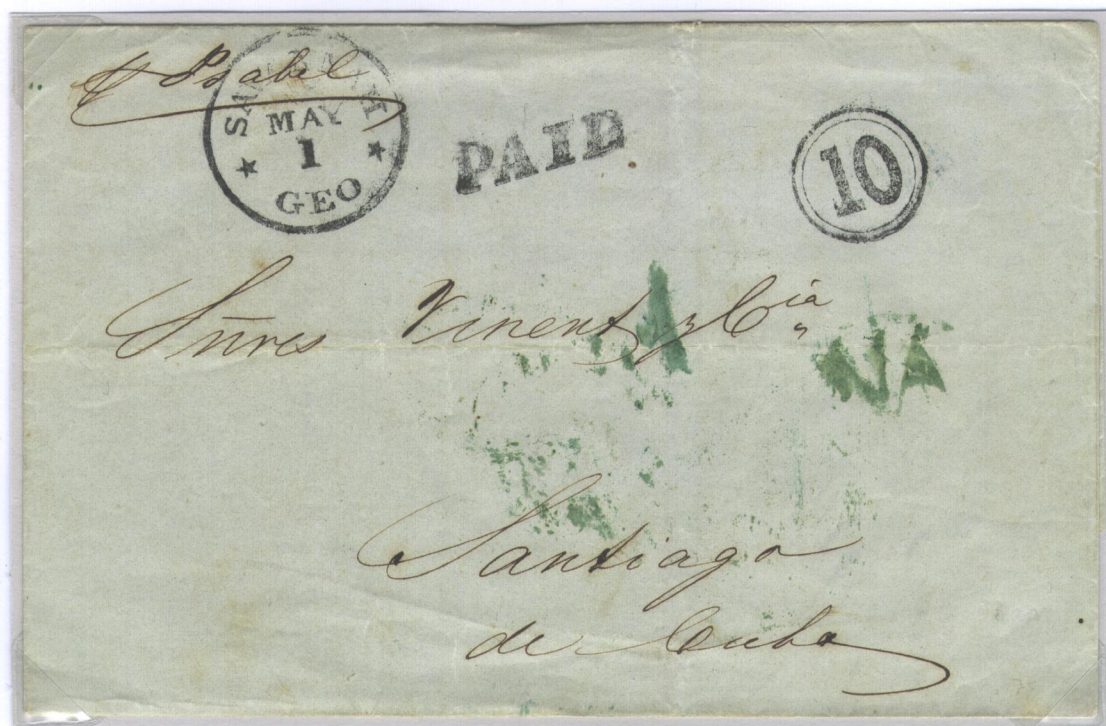 pr Ysabel
SAVANNAH
MAY
1
GEO
PAID
10
Sñres Vinent y Cia
NA
Santiago
de Cuba